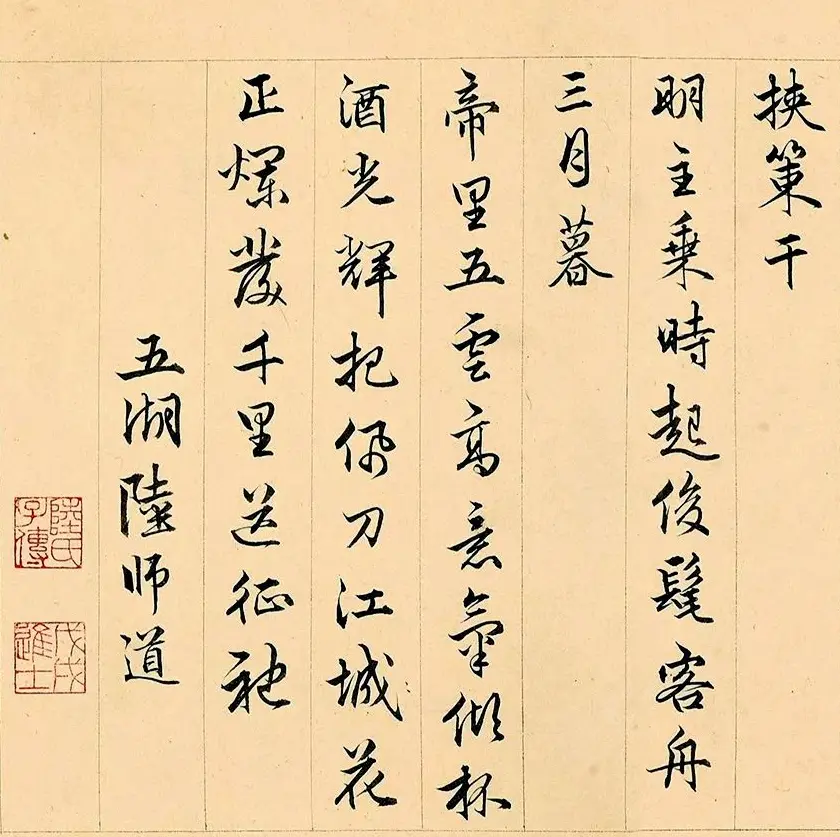 挾策干
明主乘時起俊髦客舟
三月暮
帝里五雲高意氣傾杯
酒光輝把佩刀江城花
正爛發千里送征袍
五湖陸师道
陸氏子傳
戊戌進士